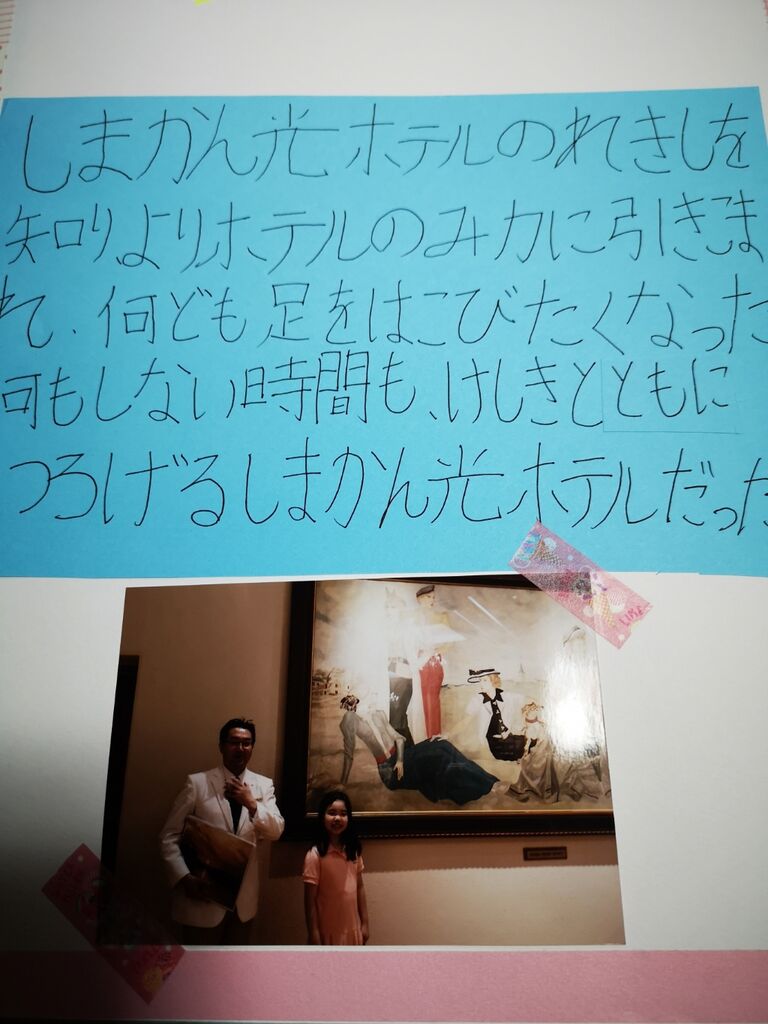 しまかん光ホテルのれきしを
知りよりホテルのみ力に引きこま
れて、何ども足をはこびたくなった
何もしない時間も、けしきとともに
つろげるしまかん光ホテルだった